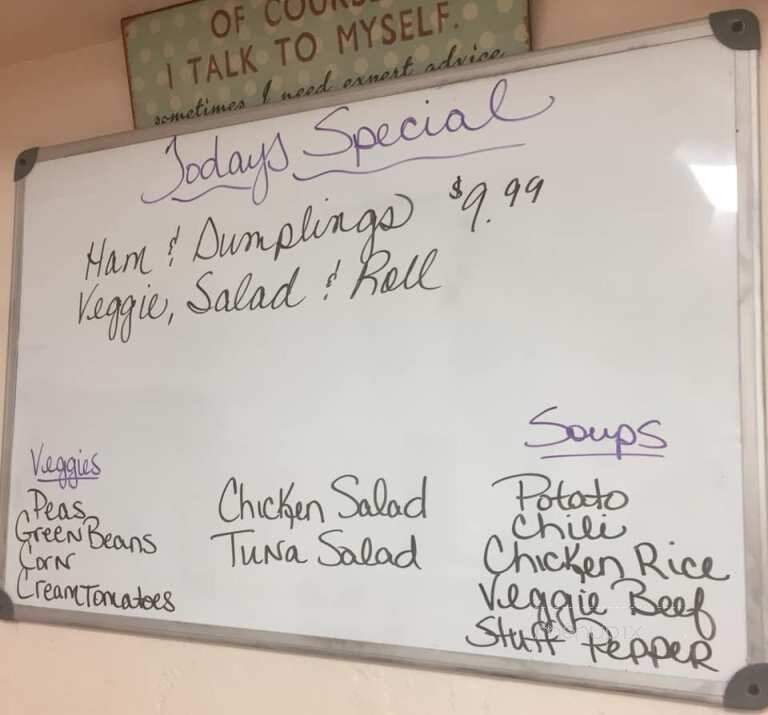 OF COURSE
I TALK TO MYSELF.
sometimes I need expert advice
Todays Special
Ham & Dumplings $9.99
Veggie, Salad & Roll
Veggies
Peas
Green Beans
Corn
Cream Tomatoes
Chicken Salad
Tuna Salad
Soups
Potato
Chili
Chicken Rice
Veggie Beef
Stuff Pepper